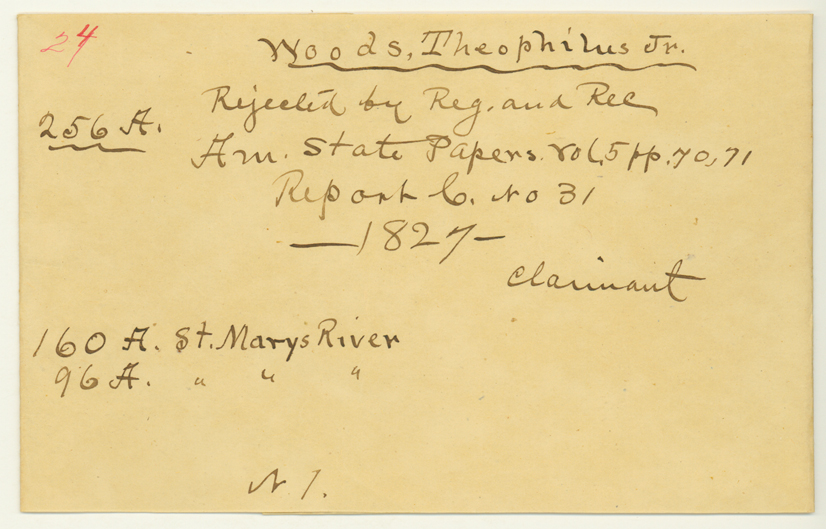 24
Woods, Theophilus Jr.
Rejected by Reg. and Rec
256 A.
Am. State Papers. Vol, 5 pp. 70, 71
Report C. No 31
— 1827 —
Claimant
160 A. St. Marys River
96 A. " " "
N 1.